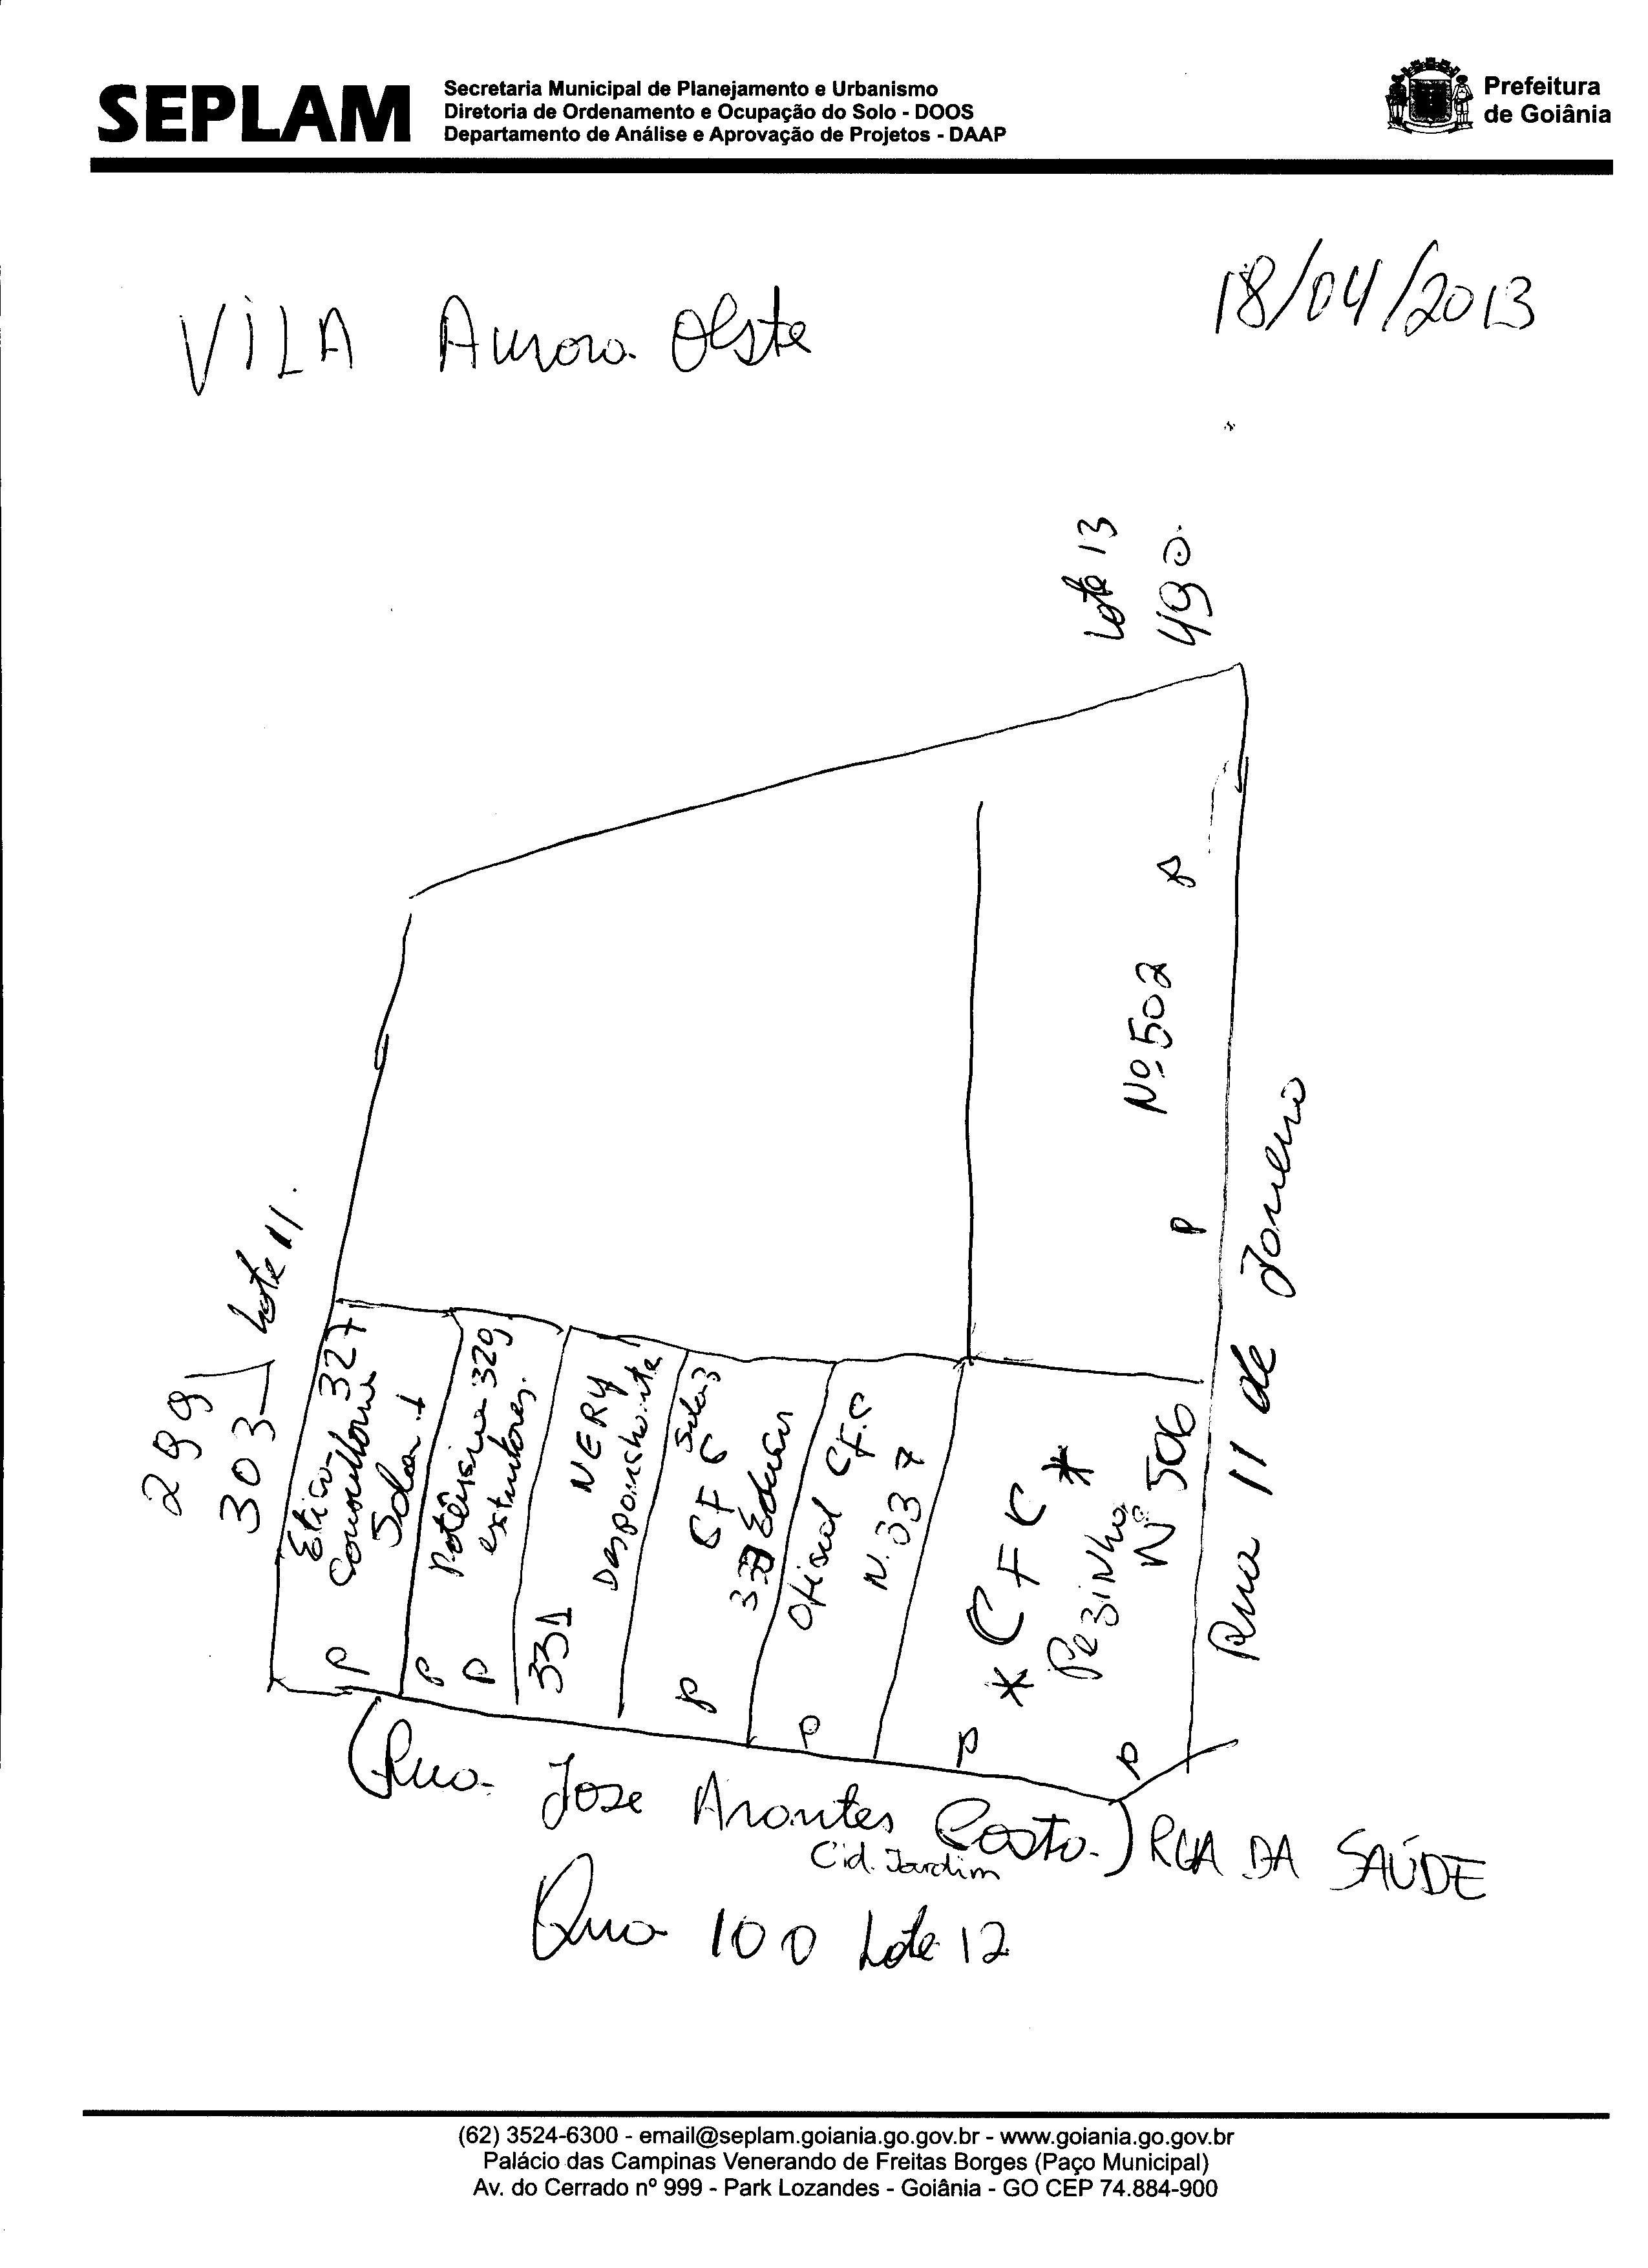 SEPLAM
Secretaria Municipal de Planejamento e Urbanismo
Diretoria de Ordenamento e Ocupação do Solo - DOOS
Departamento de Análise e Aprovação de Projetos - DAAP
Prefeitura
de Goiânia
18/04/2013
VILA Aurora Oeste
Lote 13
490
Nº 502
P
Rua 11 de Janeiro
299
303
Lote 11.
327
Sala 1
P
329
extintores.
P
P
NERY
Despanchante
331
Sala 3
CFC
Educar
P
CFC
N. 337
P
* CFC *
Pezinho
Nº 506
P
P
(Rua Jose Arantes Costa)
RUA DA SAÚDE
Cid. Jardim
Qua 100 Lote 12
(62) 3524-6300 - email@seplam.goiania.go.gov.br - www.goiania.go.gov.br
Palácio das Campinas Venerando de Freitas Borges (Paço Municipal)
Av. do Cerrado nº 999 - Park Lozandes - Goiânia - GO CEP 74.884-900